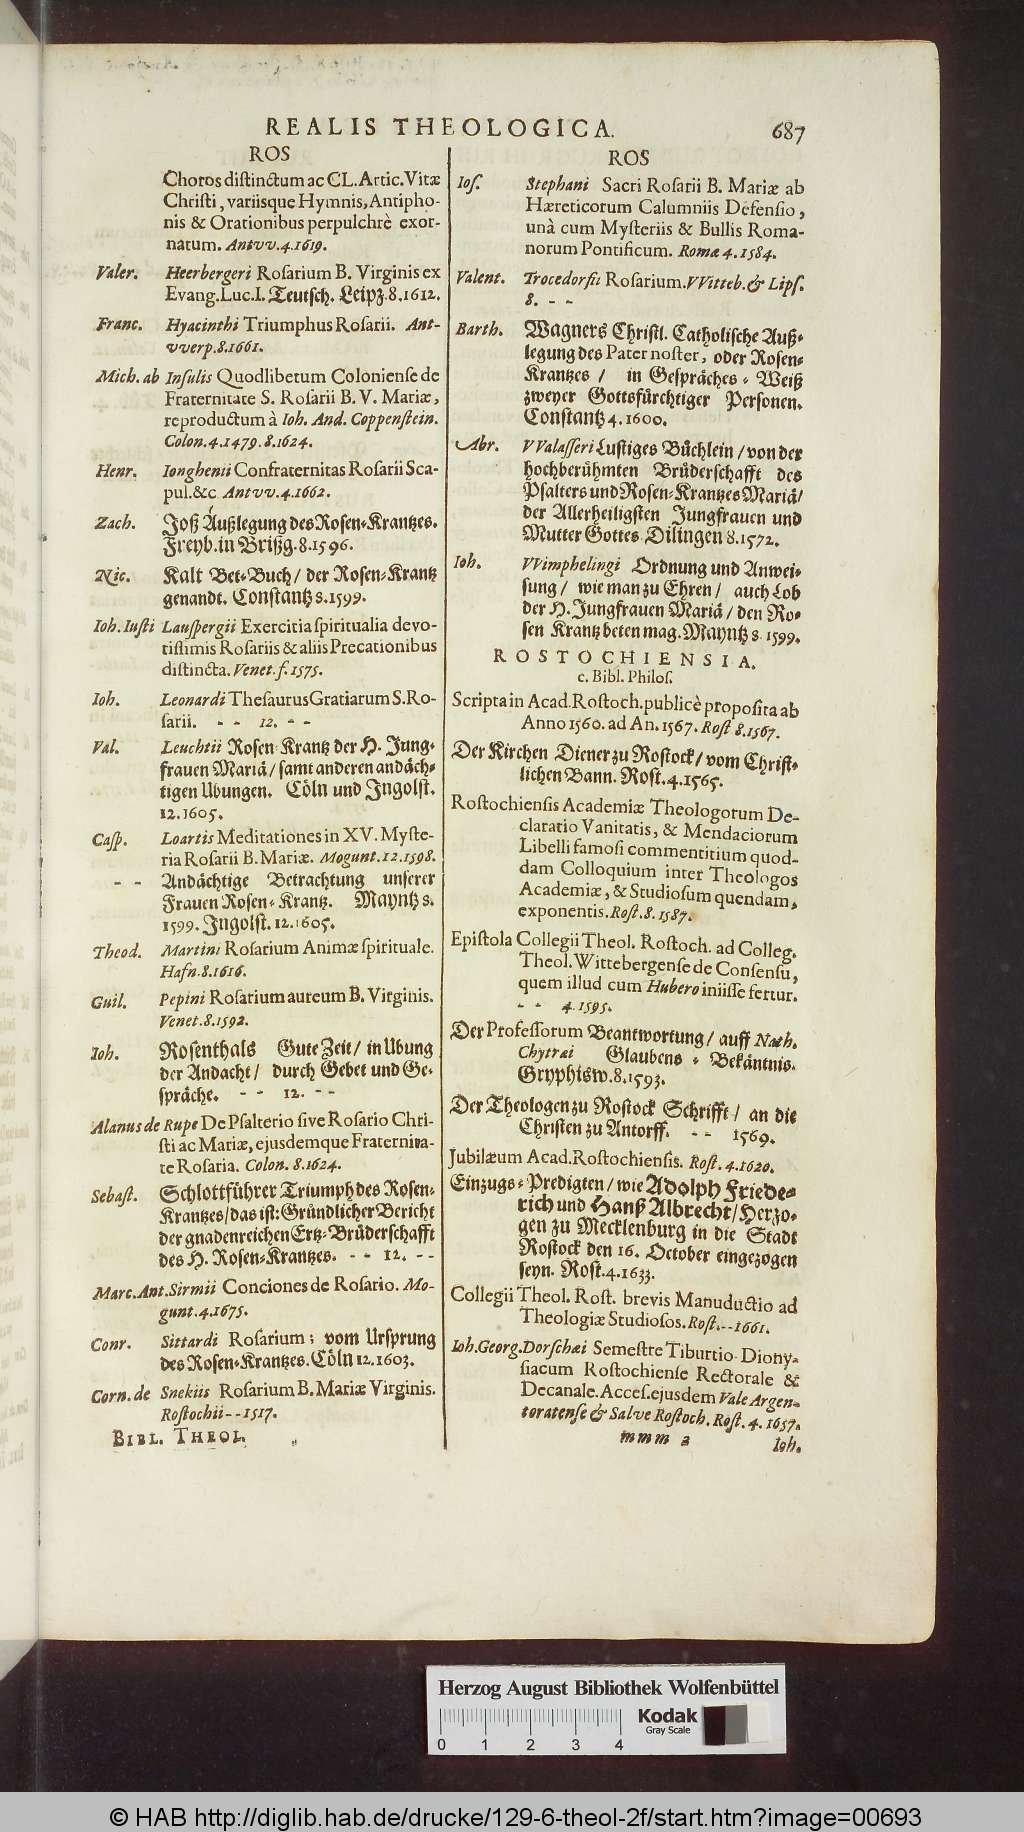 REALIS THEOLOGICA. 687
ROS
Choros distinctum ac CL. Artic. Vitæ
Christi, variisque Hymnis, Antipho-
nis & Orationibus perpulchrè exor-
natum. Antvv. 4. 1619.
Valer. Heerbergeri Rosarium B. Virginis ex
Evang. Luc. I. Teutsch. Leipz. 8. 1612.
Franc. Hyacinthi Triumphus Rosarii. Ant-
vverp. 8. 1661.
Mich. ab Insulis Quodlibetum Coloniense de
Fraternitate S. Rosarii B. V. Mariæ,
reproductum à Ioh. And. Coppenstein.
Colon. 4. 1479. 8. 1624.
Henr. Ionghenii Confraternitas Rosarii Sca-
pul. &c. Antvv. 4. 1662.
Zach. Joß Außlegung des Rosen-Krantzes.
Freyb. in Brißg. 8. 1596.
Nic. Kalt Bet-Buch / der Rosen-Krantz
genandt. Constantz 8. 1599.
Ioh. Iusti Lauspergii Exercitia spiritualia devo-
tissimis Rosariis & aliis Precationibus
distincta. Venet. f. 1575.
Ioh. Leonardi Thesaurus Gratiarum S. Ro-
sarii. - - 12. - -
Val. Leuchtii Rosen-Krantz der H. Jung-
frauen Mariä / samt anderen andäch-
tigen Ubungen. Cöln und Ingolst.
12. 1605.
Casp. Loartis Meditationes in XV. Myste-
ria Rosarii B. Mariæ. Mogunt. 12. 1598.
- - Andächtige Betrachtung unserer
Frauen Rosen-Krantz. Mayntz 8.
1599. Ingolst. 12. 1605.
Theod. Martini Rosarium Animæ spirituale.
Hafn. 8. 1616.
Guil. Pepini Rosarium aureum B. Virginis.
Venet. 8. 1592.
Ioh. Rosenthals Gute Zeit / in Ubung
der Andacht / durch Gebet und Ge-
spräche. - - 12. - -
Alanus de Rupe De Psalterio sive Rosario Chri-
sti ac Mariæ, ejusdemque Fraternita-
te Rosaria. Colon. 8. 1624.
Sebast. Schlottführer Triumph des Rosen-
Krantzes / das ist: Gründlicher Bericht
der gnadenreichen Ertz-Brüderschafft
des H. Rosen-Krantzes. - - 12. - -
Marc. Ant. Sirmii Conciones de Rosario. Mo-
gunt. 4. 1675.
Conr. Sittardi Rosarium; vom Ursprung
des Rosen-Krantzes. Cöln 12. 1603.
Corn. de Snekiis Rosarium B. Mariæ Virginis.
Rostochii - - 1517.
BIBL. THEOL.
ROS
Ios. Stephani Sacri Rosarii B. Mariæ ab
Hæreticorum Calumniis Defensio,
unà cum Mysteriis & Bullis Roma-
norum Pontificum. Romæ 4. 1584.
Valent. Trocedorfii Rosarium. VVitteb. & Lips.
8. - -
Barth. Wagners Christl. Catholische Auß-
legung des Pater noster, oder Rosen-
Krantzes / in Gespräches-Weiß
zweyer Gottsfürchtiger Personen.
Constantz 4. 1600.
Abr. VValasseri Lustiges Büchlein / von der
hochberühmten Brüderschafft des
Psalters und Rosen-Krantzes Mariä /
der Allerheiligsten Jungfrauen und
Mutter Gottes. Dilingen 8. 1572.
Ioh. VVimphelingi Ordnung und Anwei-
sung / wie man zu Ehren / auch Lob
der H. Jungfrauen Mariä / den Ro-
sen Krantz beten mag. Mayntz 8. 1599.
ROSTOCHIENSIA.
c. Bibl. Philos.
Scripta in Acad. Rostoch. publicè proposita ab
Anno 1560. ad An. 1567. Rost 8. 1567.
Der Kirchen Diener zu Rostock / vom Christ-
lichen Bann. Rost. 4. 1565.
Rostochiensis Academiæ Theologorum De-
claratio Vanitatis, & Mendaciorum
Libelli famosi commentitium quod-
dam Colloquium inter Theologos
Academiæ, & Studiosum quendam,
exponentis. Rost. 8. 1587.
Epistola Collegii Theol. Rostoch. ad Colleg.
Theol. Wittebergense de Consensu,
quem illud cum Hubero iniisse fertur.
- - 4. 1595.
Der Professorum Beantwortung / auff Nath.
Chytræi Glaubens-Bekäntnis.
Gryphisw. 8. 1593.
Der Theologen zu Rostock Schrifft / an die
Christen zu Antorff. - - 1569.
Jubilæum Acad. Rostochiensis. Rost. 4. 1620.
Einzugs-Predigten / wie Adolph Friede-
rich und Hanß Albrecht / Herzo-
gen zu Mecklenburg in die Stadt
Rostock den 16. October eingezogen
seyn. Rost. 4. 1633.
Collegii Theol. Rost. brevis Manuductio ad
Theologiæ Studiosos. Rost. - - 1661.
Ioh. Georg. Dorschæi Semestre Tiburtio-Diony-
siacum Rostochiense Rectorale &
Decanale. Acces. ejusdem Vale Argen-
toratense & Salve Rostoch. Rost. 4. 1657.
mmm 2 Ioh.
Herzog August Bibliothek Wolfenbüttel
Kodak
Gray Scale
0 1 2 3 4
© HAB http://diglib.hab.de/drucke/129-6-theol-2f/start.htm?image=00693